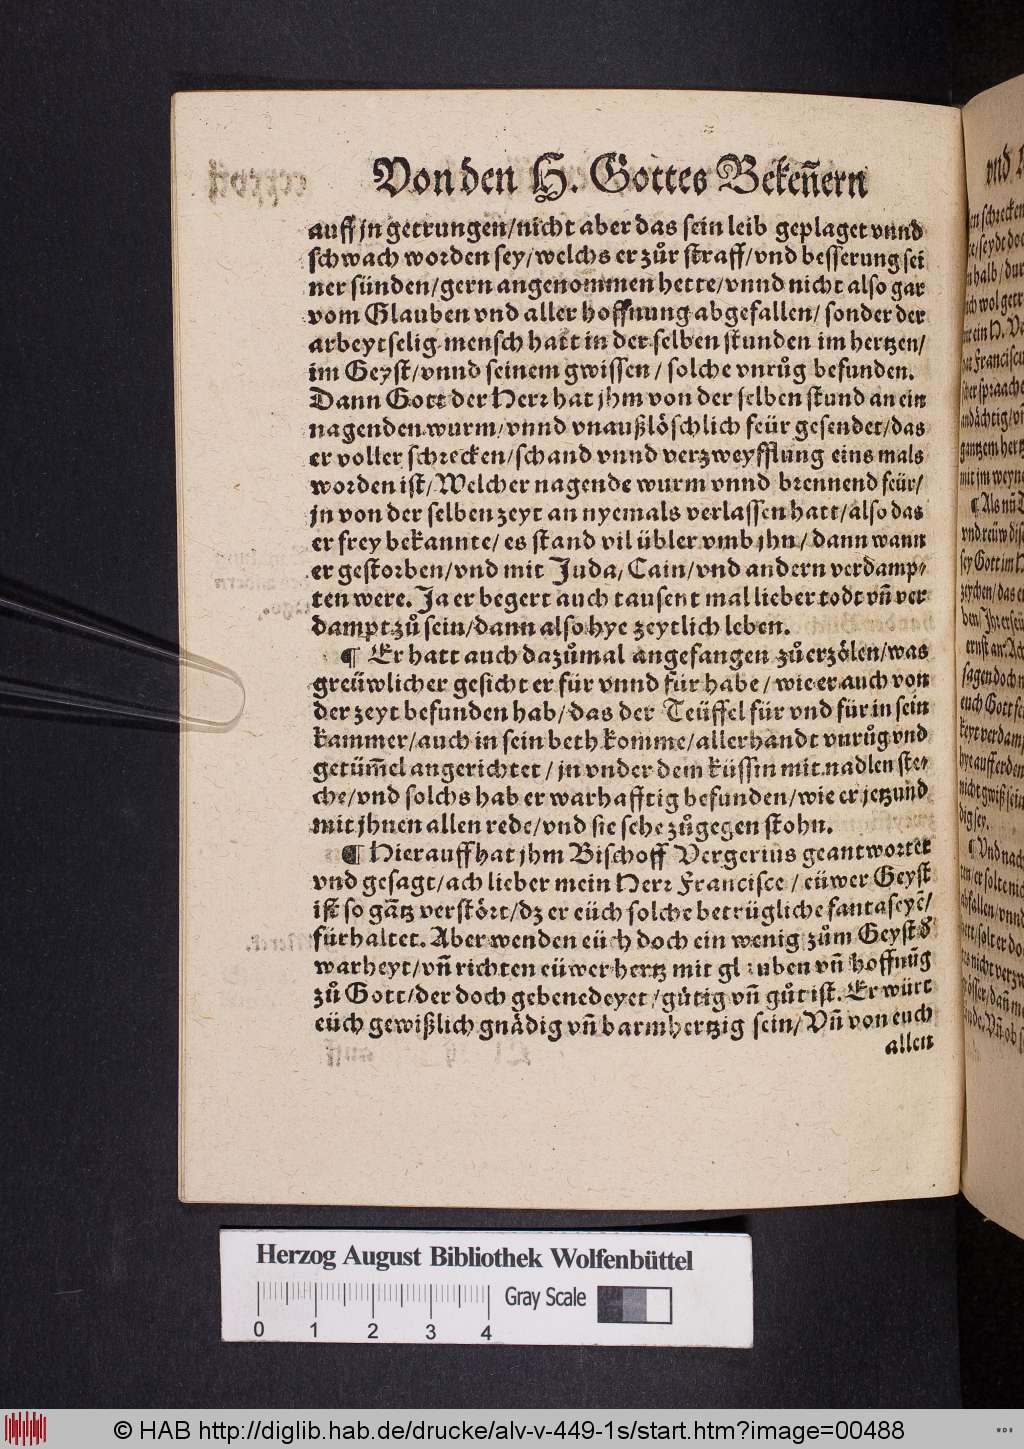 Von den H. Gottes Bekeñern
auff jn getrungen/nicht aber das sein leib geplaget vnnd
schwach worden sey/welchs er zůr straff/vnd besserung sei
ner sünden/gern angenommen hette/vnnd nicht also gar
vom Glauben vnd aller hoffnung abgefallen/sonder der
arbeytselig mensch hatt in der selben stunden im hertzen/
im Geyst/vnnd seinem gwissen/solche vnrůg befunden.
Dann Gott der Herr hat jhm von der selben stund an ein
nagenden wurm/vnnd vnaußlöschlich feür gesendet/das
er voller schrecken/schand vnnd verzweyfflung eins mals
worden ist/Welcher nagende wurm vnnd brennend feür/
jn von der selben zeyt an nyemals verlassen hatt/also das
er frey bekannte/es stand vil übler vmb jhn/dann wann
er gestorben/vnd mit Juda/Cain/vnd andern verdamp-
ten were. Ja er begert auch tausent mal lieber todt vñ ver
dampt zů sein/dann also hye zeytlich leben.
¶ Er hatt auch dazůmal angefangen zů erzölen/was
greüwlicher gesicht er für vnnd für habe/wie er auch von
der zeyt befunden hab/das der Teüffel für vnd für in sein
kammer/auch in sein beth komme/allerhandt vnrůg vnd
getüm̃el angerichtet/jn vnder dem küssin mit nadlen ste-
che/vnd solchs hab er warhafftig befunden/wie er jetzund
mit jhnen allen rede/vnd sie sehe zůgegen stohn.
¶ Hierauff hat jhm Bischoff Vergerius geantwortet
vnd gesagt/ach lieber mein Herr Francisce/eüwer Geyst
ist so gãtz verstört/dz er eüch solche betrügliche fantaseyẽ/
fürhaltet. Aber wenden eüch doch ein wenig zům Geyst đ
warheyt/vñ richten eüwer hertz mit glauben vñ hoffnũg
zů Gott/der doch gebenedeyet/gütig vñ gůt ist. Er würt
eüch gewißlich gnädig vñ barmhertzig sein/Vñ von euch
allen
Herzog August Bibliothek Wolfenbüttel
Gray Scale
0 1 2 3 4
© HAB http://diglib.hab.de/drucke/alv-v-449-1s/start.htm?image=00488